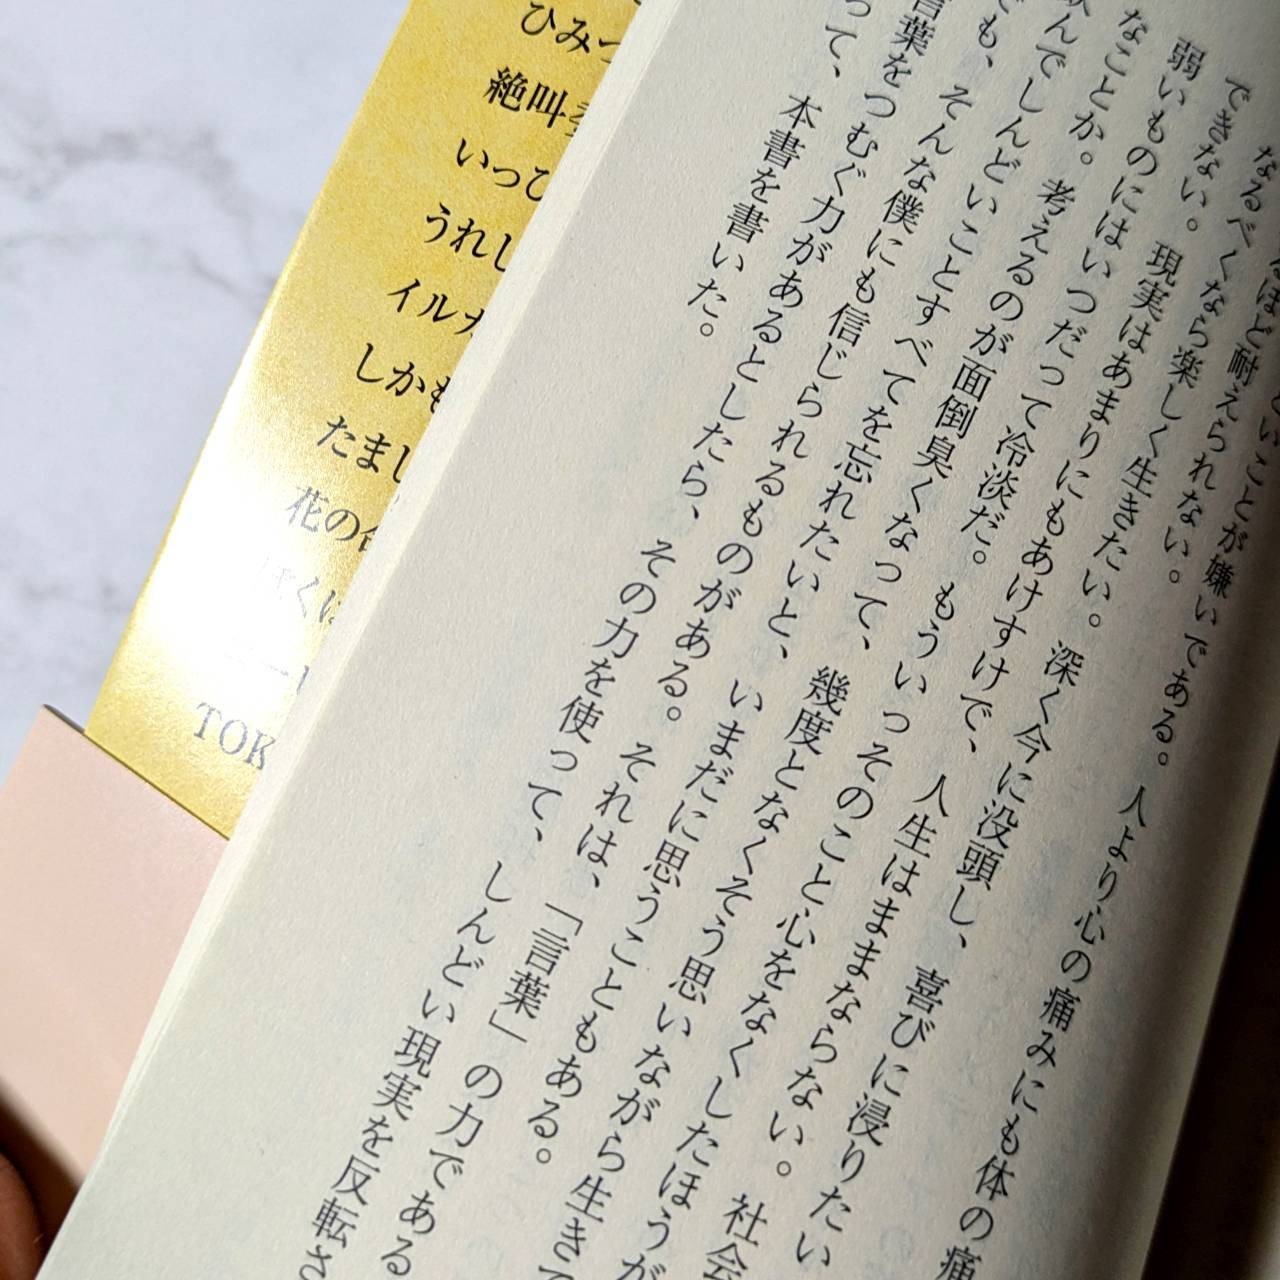 いことが嫌いである。人より心の痛みにも体の痛
ほど耐えられない。
なるべくなら楽しく生きたい。深く今に没頭し、喜びに浸りたい
できない。現実はあまりにもあけすけで、人生はままならない。社会
弱いものにはいつだって冷淡だ。もういっそのこと心をなくしたほうが
なことか。考えるのが面倒臭くなって、幾度となくそう思いながら生きて
んでしんどいことすべてを忘れたいと、いまだに思うこともある。
でも、そんな僕にも信じられるものがある。それは、「言葉」の力である
言葉をつむぐ力があるとしたら、その力を使って、しんどい現実を反転さ
って、本書を書いた。
ひみつ
絶叫
いっぴ
うれし
イルカ
しかも
たまし
花の
ぼくは
TOK